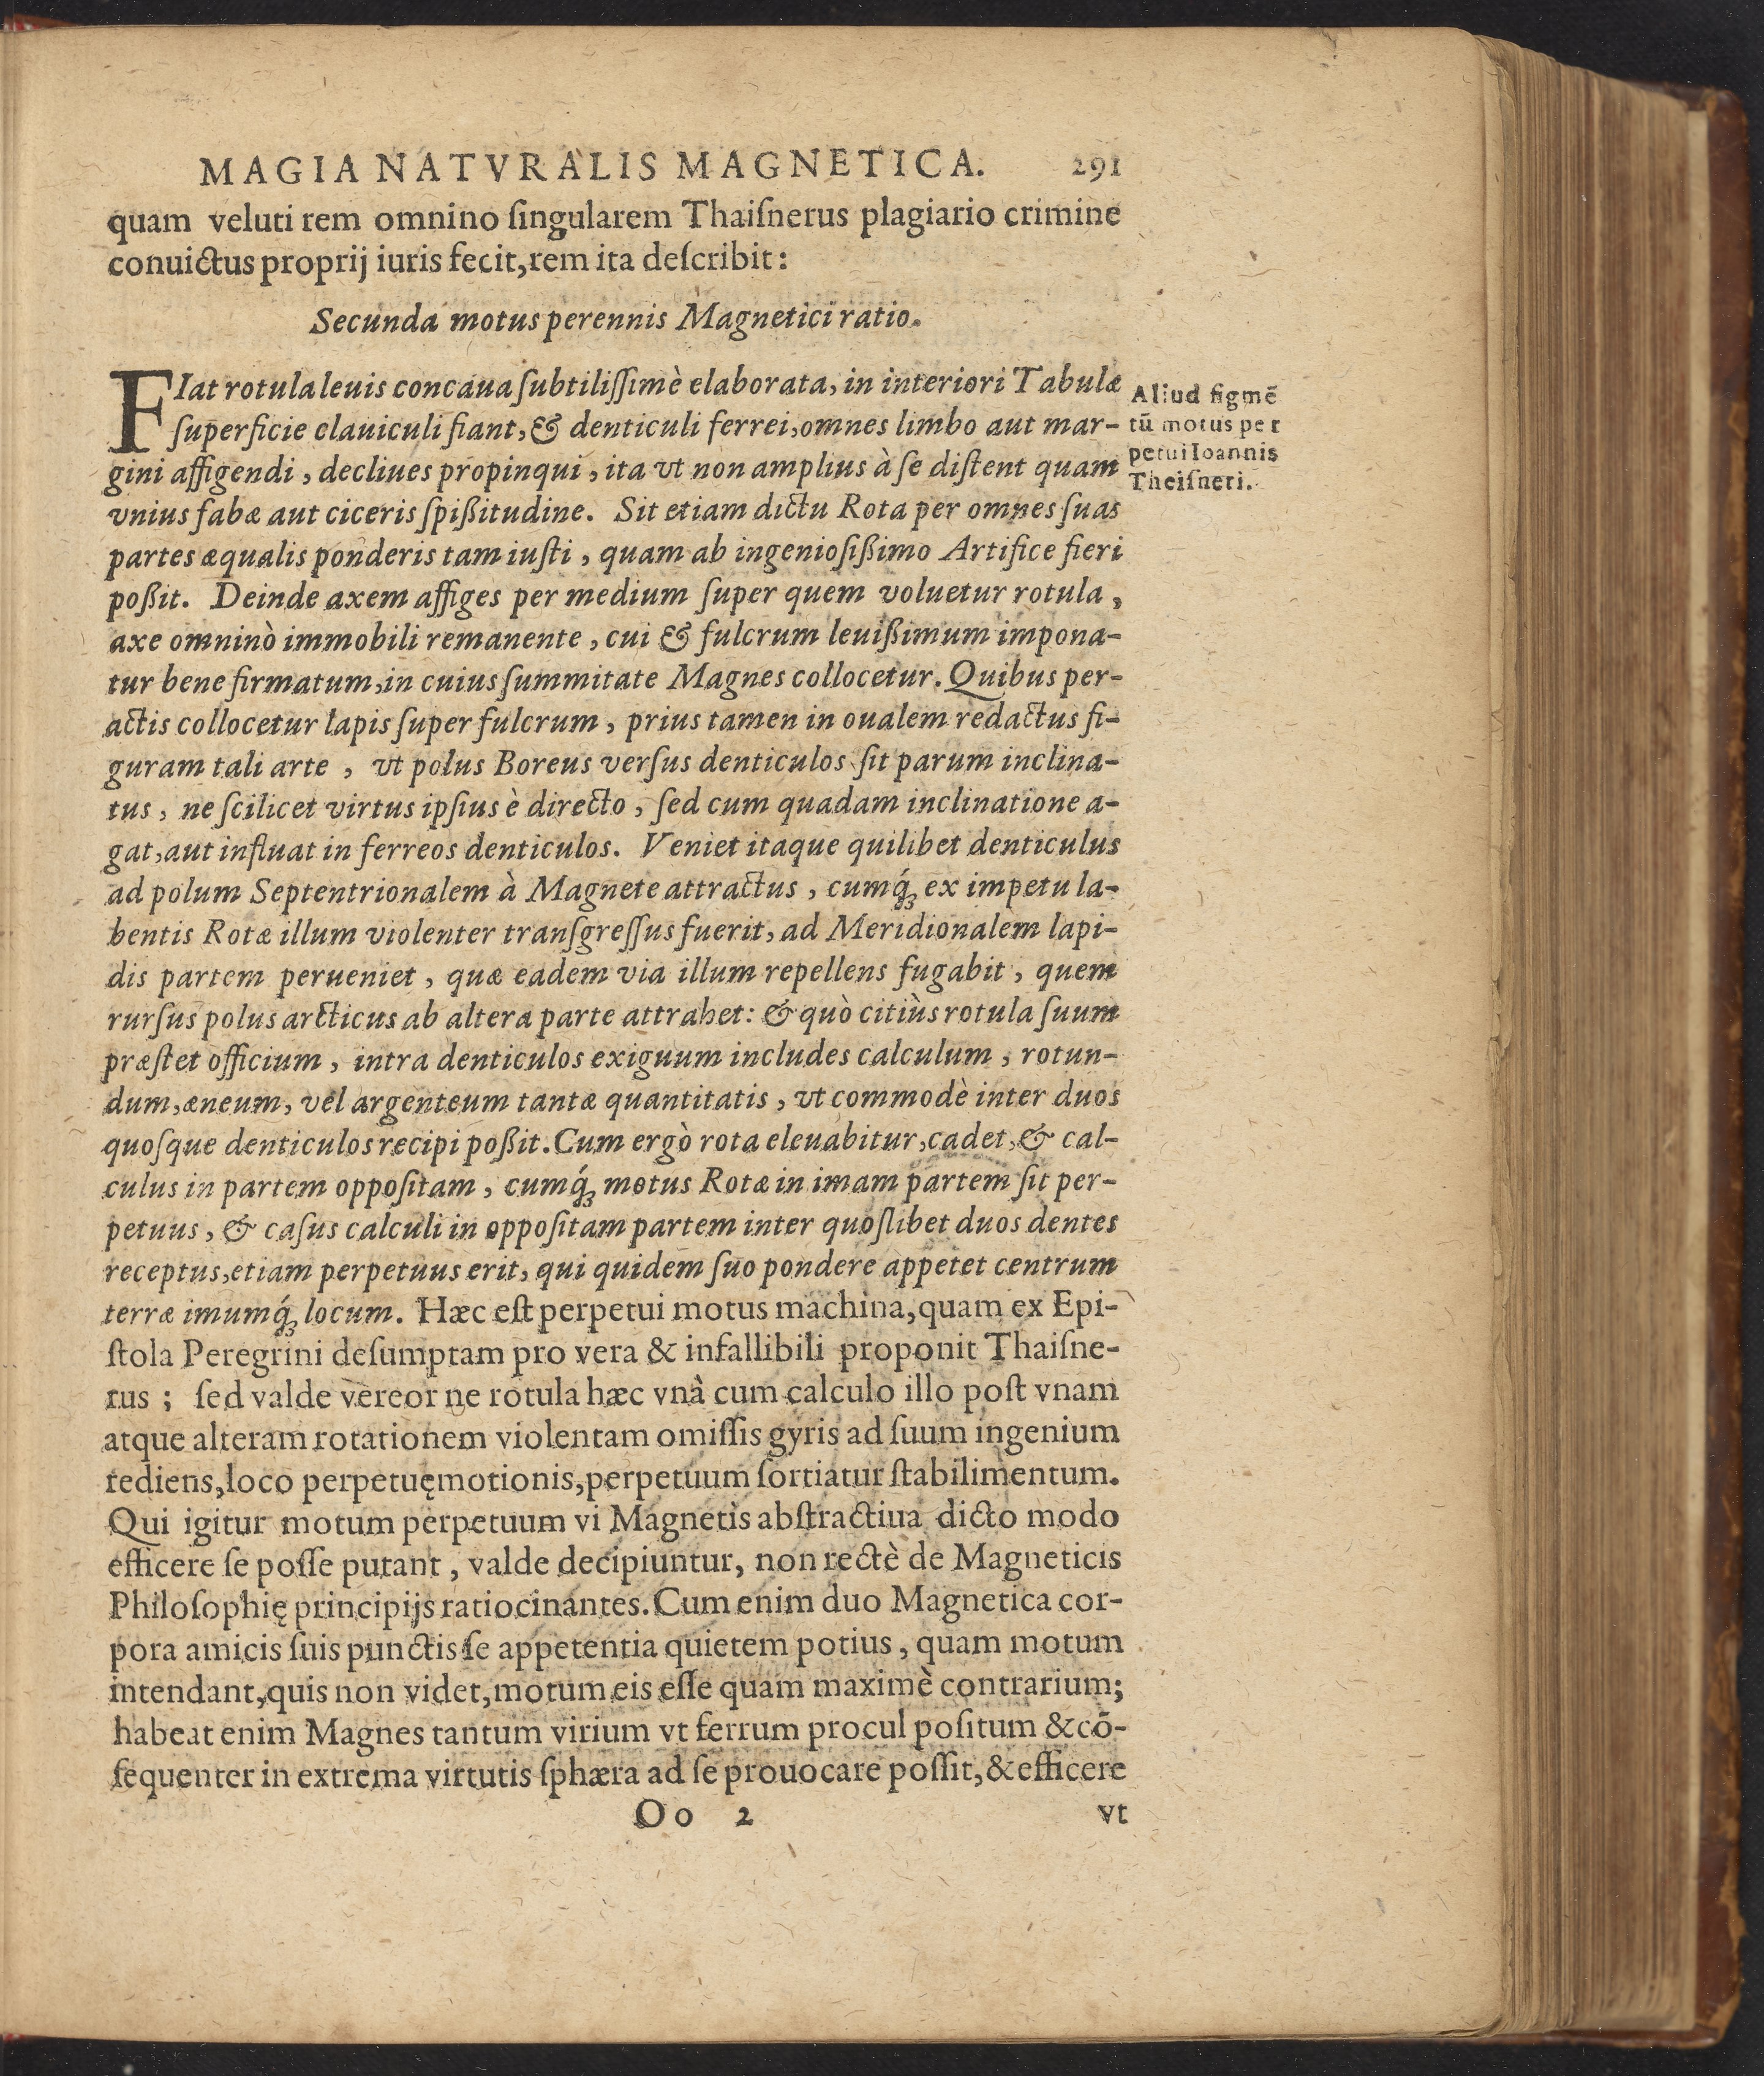 MAGIA NATVRALIS MAGNETICA. 291
quam veluti rem omnino ſingularem Thaiſnerus plagiario crimine
conuictus proprij iuris fecit, rem ita deſcribit:
Secunda motus perennis Magnetici ratio.
FIat rotula leuis concaua ſubtiliſſimè elaborata, in interiori Tabulæ
ſuperficie clauiculi fiant, & denticuli ferrei, omnes limbo aut mar-
gini affigendi, decliues propinqui, ita vt non amplius à ſe diſtent quam
vnius fabæ aut ciceris ſpißitudine. Sit etiam dictu Rota per omnes ſuas
partes æqualis ponderis tam iuſti, quam ab ingenioſißimo Artifice fieri
poßit. Deinde axem affiges per medium ſuper quem voluetur rotula,
axe omninò immobili remanente, cui & fulcrum leuißimum impona-
tur bene firmatum, in cuius ſummitate Magnes collocetur. Quibus per-
actis collocetur lapis ſuper fulcrum, prius tamen in oualem redactus fi-
guram tali arte, vt polus Boreus verſus denticulos ſit parum inclina-
tus, ne ſcilicet virtus ipſius è directo, ſed cum quadam inclinatione a-
gat, aut influat in ferreos denticulos. Veniet itaque quilibet denticulus
ad polum Septentrionalem à Magnete attractus, cumq́ꝫ ex impetu la-
bentis Rotæ illum violenter tranſgreſſus fuerit, ad Meridionalem lapi-
dis partem perueniet, quæ eadem via illum repellens fugabit, quem
rurſus polus arcticus ab altera parte attrahet: & quò citiùs rotula ſuum
præſtet officium, intra denticulos exiguum includes calculum, rotun-
dum, æneum, vel argenteum tantæ quantitatis, vt commodè inter duos
quoſque denticulos recipi poßit. Cum ergò rota eleuabitur, cadet, & cal-
culus in partem oppoſitam, cumq́ꝫ motus Rotæ in imam partem ſit per-
petuus, & caſus calculi in oppoſitam partem inter quoſlibet duos dentes
receptus, etiam perpetuus erit, qui quidem ſuo pondere appetet centrum
terræ imumq́ꝫ locum. Hæc eſt perpetui motus machina, quam ex Epi-
ſtola Peregrini deſumptam pro vera & infallibili proponit Thaiſne-
rus; ſed valde vereor ne rotula hæc vnà cum calculo illo poſt vnam
atque alteram rotationem violentam omiſſis gyris ad ſuum ingenium
rediens, loco perpetuę motionis, perpetuum ſortiatur ſtabilimentum.
Qui igitur motum perpetuum vi Magnetis abſtractiua dicto modo
efficere ſe poſſe putant, valde decipiuntur, non rectè de Magneticis
Philoſophię principijs ratiocinantes. Cum enim duo Magnetica cor-
pora amicis ſuis punctis ſe appetentia quietem potius, quam motum
intendant, quis non videt, motum eis eſſe quam maximè contrarium;
habeat enim Magnes tantum virium vt ferrum procul poſitum & cō-
ſequenter in extrema virtutis ſphæra ad ſe prouocare poſſit, & efficere
Oo 2 vt
Aliud figmē
tū motus per
petui Ioannis
Theiſneri.